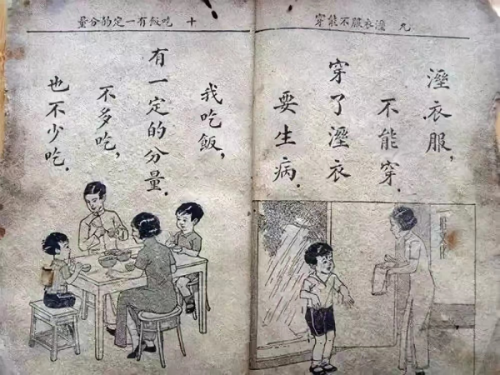 九 溼衣服不能穿
溼衣服,
不能穿.
穿了溼衣
要生病.
十 吃飯有一定的分量
我吃飯,
有一定的分量.
不多吃,
也不少吃.